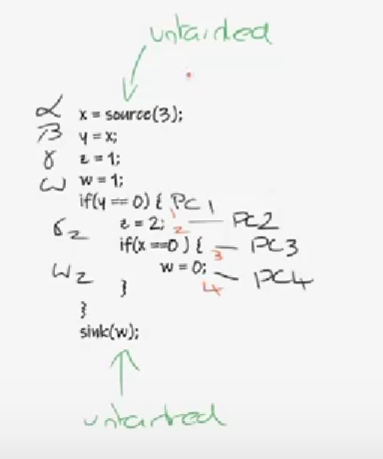 untainted
α x = source(3);
β y = x;
γ z = 1;
ω w = 1;
if(y == 0) { PC1
1
σ2 z = 2; 2 PC2
if(x ==0 ) { PC3
3
ω2 w = 0; PC4
4
}
}
sink(w);
untainted